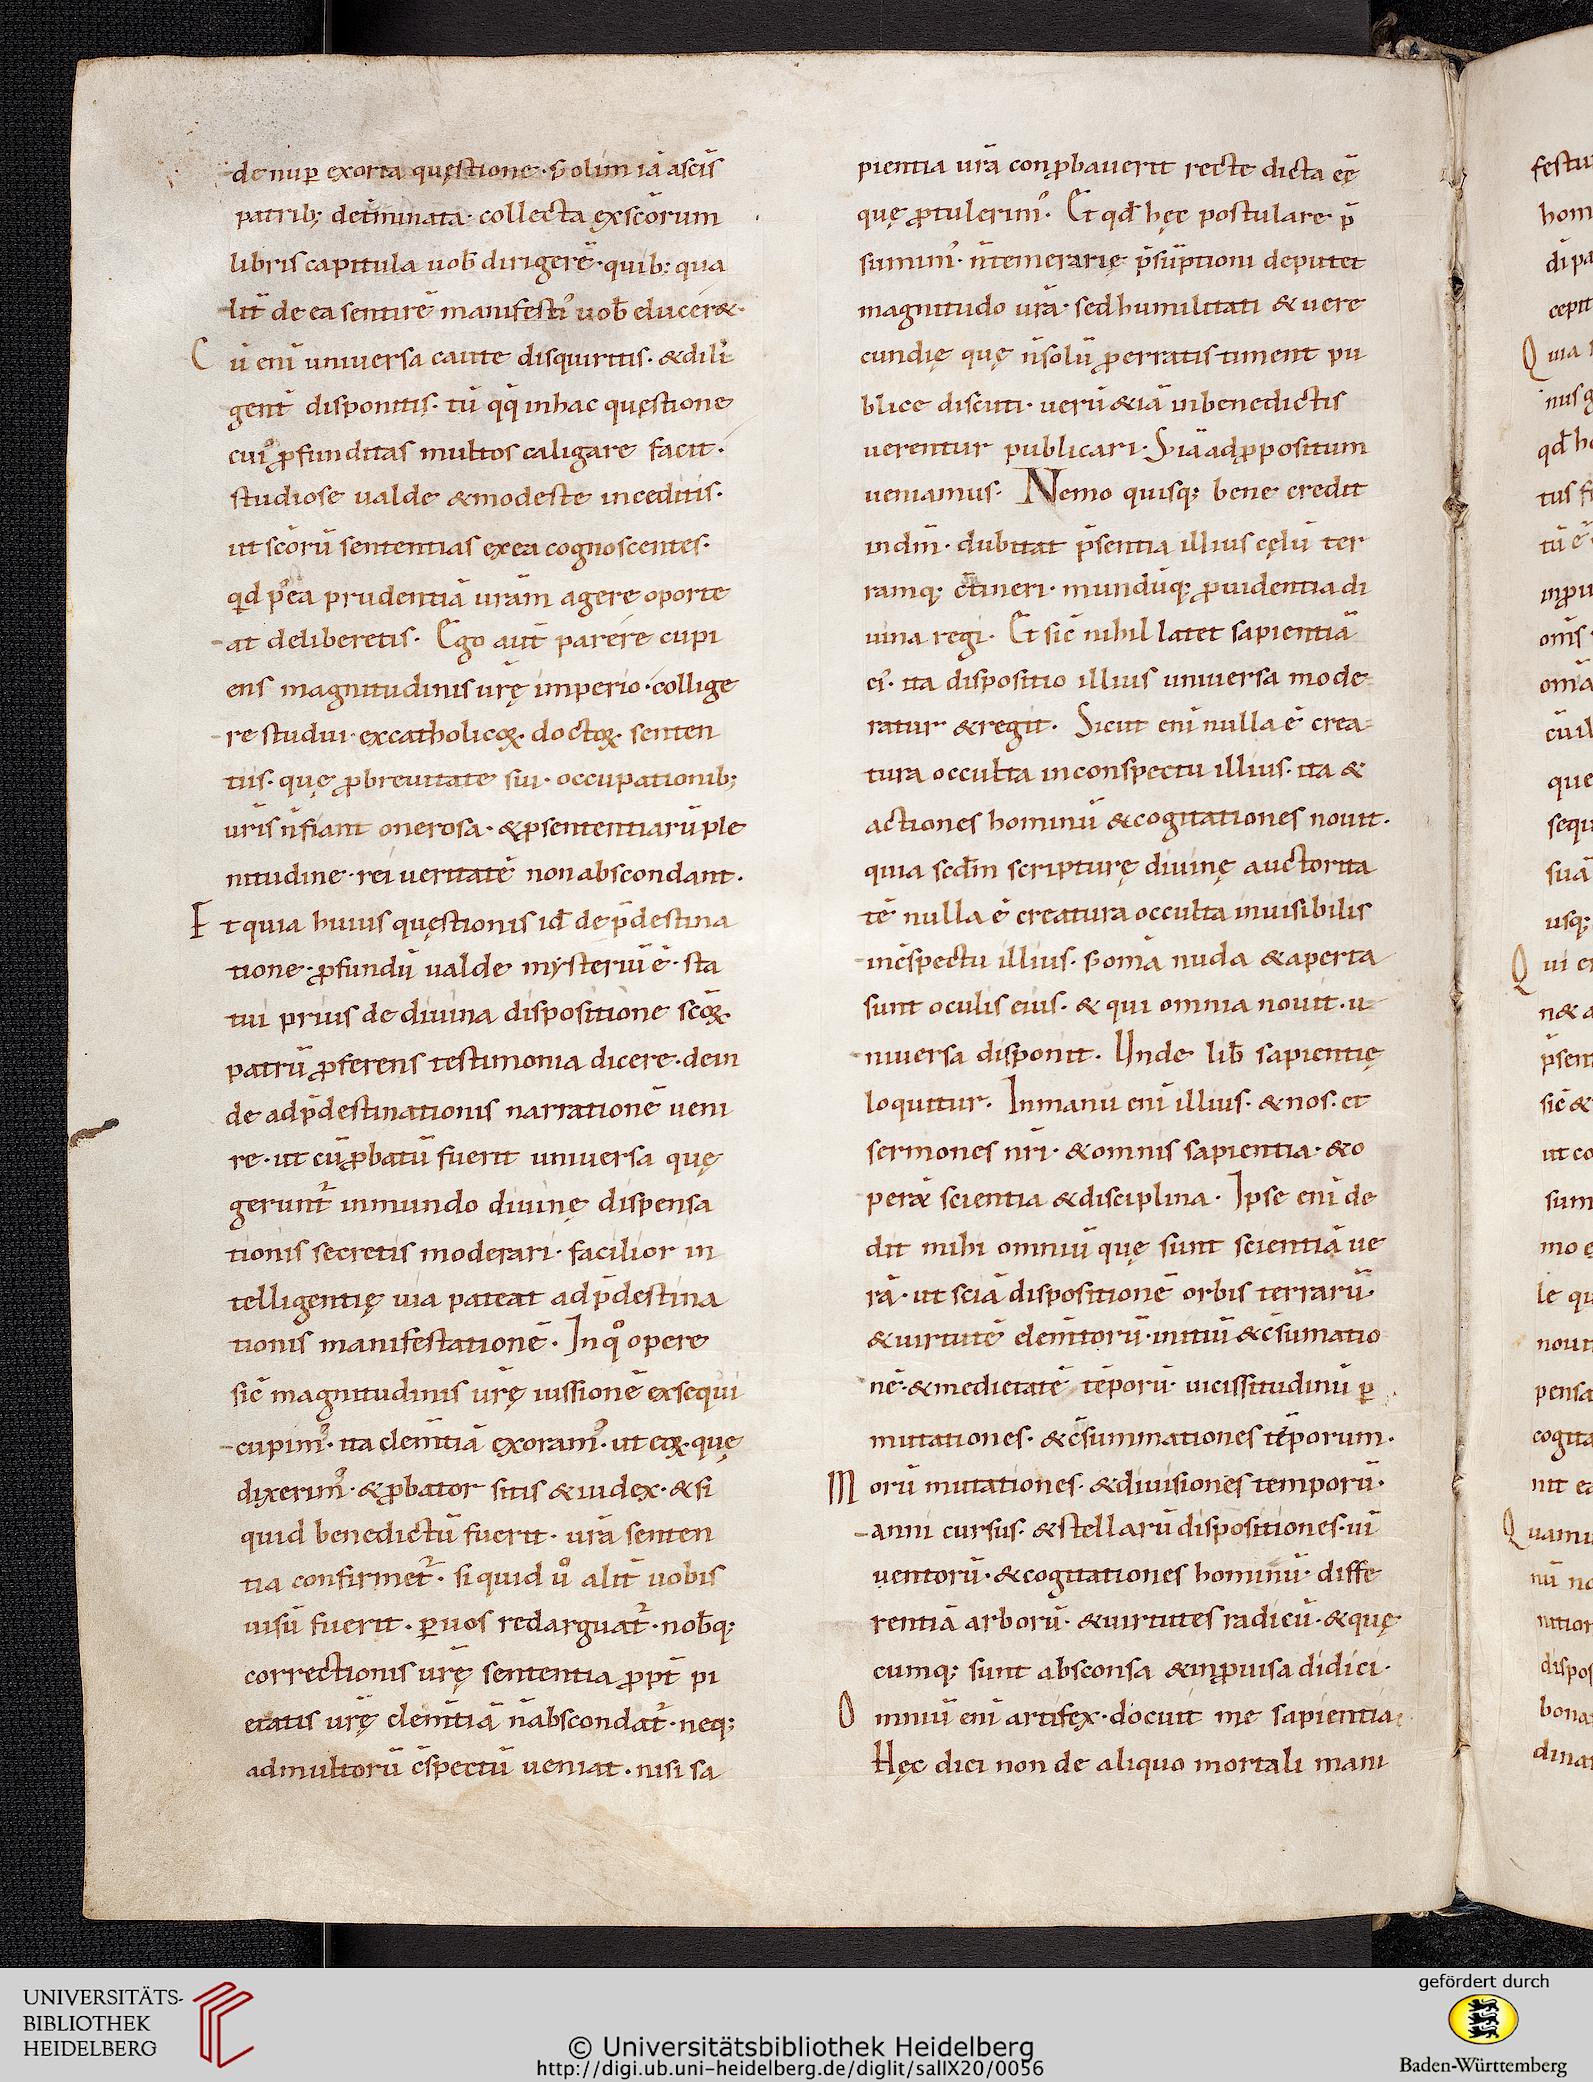 de nup̱ exorta quęstione · s̄ olim iā a sc̄is
patrib; det̄minata · collecta ex sc̄orum
libris capitula uob̄ dirigerē · quib; qua
lit̄ de ea sentirē manifesti᾽ uob̄ elucér& ·
C ū eni uniuersa caute disquiritis · & dili
gent̄ disponitis · tū q̄q̄ in hac quęstione
cui᾽ ꝓfunditas multos caligare facit ·
studiose ualde & modeste inceditis ·
ut sc̄orū sententias ex ea cognoscentes ·
qd p᾽ ea prudentiā ur̄am agere oporte
at deliberetis · Ego aut̄ parére cupi
ens magnitudinis ur̄ę imperio · collige
re studui · ex catholicoꝝ doctoꝝ senten
tiis · quę ꝓ breuitate sui · occupationib;
ur̄is n̄ fiant onerosa · & p sententiarū ple
nitudine · rei ueritatē non abscondant ·
E t quia huius quęstionis id̄ de p̄destina
tione · ꝓfundū ualde mysteriū ē · sta
tui prius de diuina dispositione sc̄oꝝ
patrū ꝓferens testimonia dicere · dein
de ad p̄destinationis narrationē ueni
re · ut cū ꝓbatū fuerit uniuersa quę
gerunt᾽ in mundo diuinę dispensa
tionis secretis moderari · facilior in
telligentię uia pateat ad p̄destina
tionis manifestationē · In qͦ opere
sic̄ magnitudinis ur̄ę iussionē exsequi
cupim᾽ · ita clem̄tiā exoram᾽ · ut eoꝝ · quę
dixerim᾽ · & ꝓbator sitis & iudex · & si
quid benedictū fuerit · ur̄a senten
tia confirmet᾽ · si quid uͦ alit̄ uobis
uisū fuerit · ꝑ uos redarguat᾽ · nob̄q;
correctionis ur̄ę sententia ꝓpt̄ pi
etatis ur̄ę clem̄tiā n̄ abscondat᾽ · neq;
ad multorū c̄spectū ueniat · nisi sa
pientia ur̄a conꝓbauerit recte dicta eē
quę ꝓtulerim᾽ · Et qd̄ hęc postulare p̄
sumim᾽ · n̄ temerarię p̄sūptioni deputet
magnitudo ur̄a · sed humilitati & uere
cundię quę n̄ solū ꝓ erratis timent pu
blice discuti · uerū &iā in benedictis
uerentur publicari · S; iā ad ꝓpositum
ueniamus · Nemo quisq; bene credit
in dm̄ · dubitat p̄sentia illius cęlū ter
ramq; c̄tineri · mundūq; ꝓuidentia di
uina regi · Et sic̄ nihil latet sapientiā
ei᾽ · ita dispositio illius uniuersa mode
ratur & regit · Sicut eni nulla ē crea
tura occulta in conspectu illius · ita &
actiones hominū & cogitationes nouit ·
quia scd̄m scripturę diuinę auctorita
tē nulla ē creatura occulta inuisibilis
in c̄spectu illius · s̄ om̄a nuda & aperta
sunt oculis eius · & qui omnia nouit · u
niuersa disponit · Unde lib̄ sapientię
loquitur · In manu eni illius · & nos · et
sermones nr̄i · & omnis sapientia · & o
perū scientia & disciplina · Ipse eni de
dit mihi omniū quę sunt scientiā ue
rā · ut sciā dispositionē orbis terrarū ·
& uirtutē elem̄torū · initiū & c̄sumatio
nē · & medietatē tēporū · uicissitudinū ꝑ
mutationes · & c̄summationes tēporum ·
M orū mutationes · & diuisiones temporū ·
anni cursus · & stellarū dispositiones · ui
uentorū · & cogitationes hominū · diffe
rentiā arborū · & uirtutes radicū · & quę
cumq; sunt absconsa & inꝓuisa didici ·
O mniū eni artifex · docuit me sapientia ·
Hęc dici non de aliquo mortali mani
UNIVERSITÄTS-
BIBLIOTHEK
HEIDELBERG
© Universitätsbibliothek Heidelberg
http://digi.ub.uni-heidelberg.de/diglit/salIX20/0056
gefördert durch
Baden-Württemberg